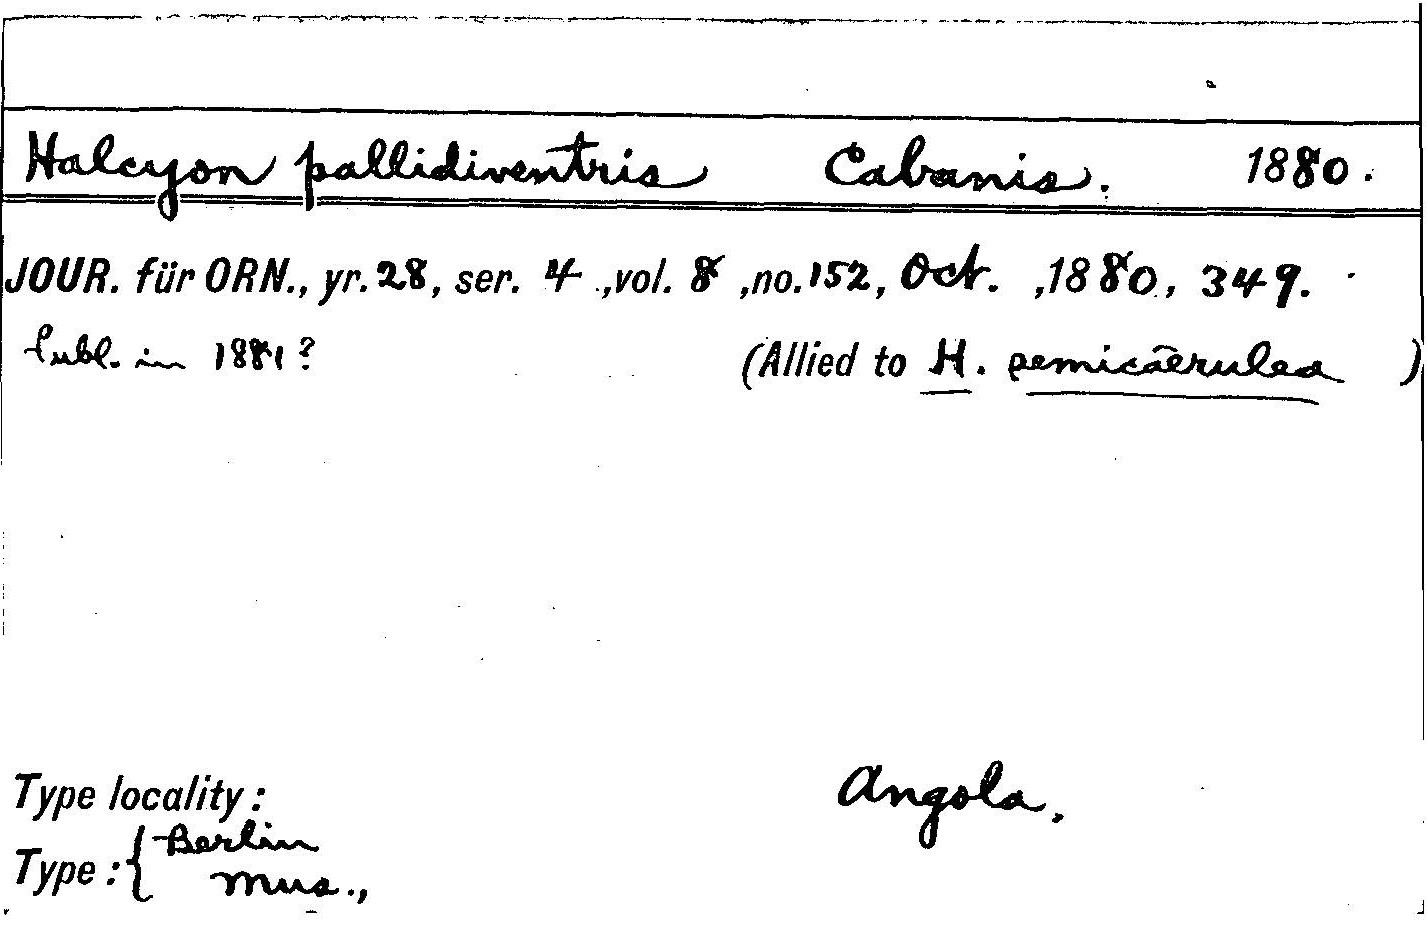 Halcyon pallidiventris Cabanis. 1880.
JOUR. für ORN., yr. 28, ser. 4 ., vol. 8 , no. 152, Oct. , 1880., 349.
Publ. in 1881? (Allied to H. semicaerulea )
Type locality: Angola.
Type: { Berlin
Mus.,